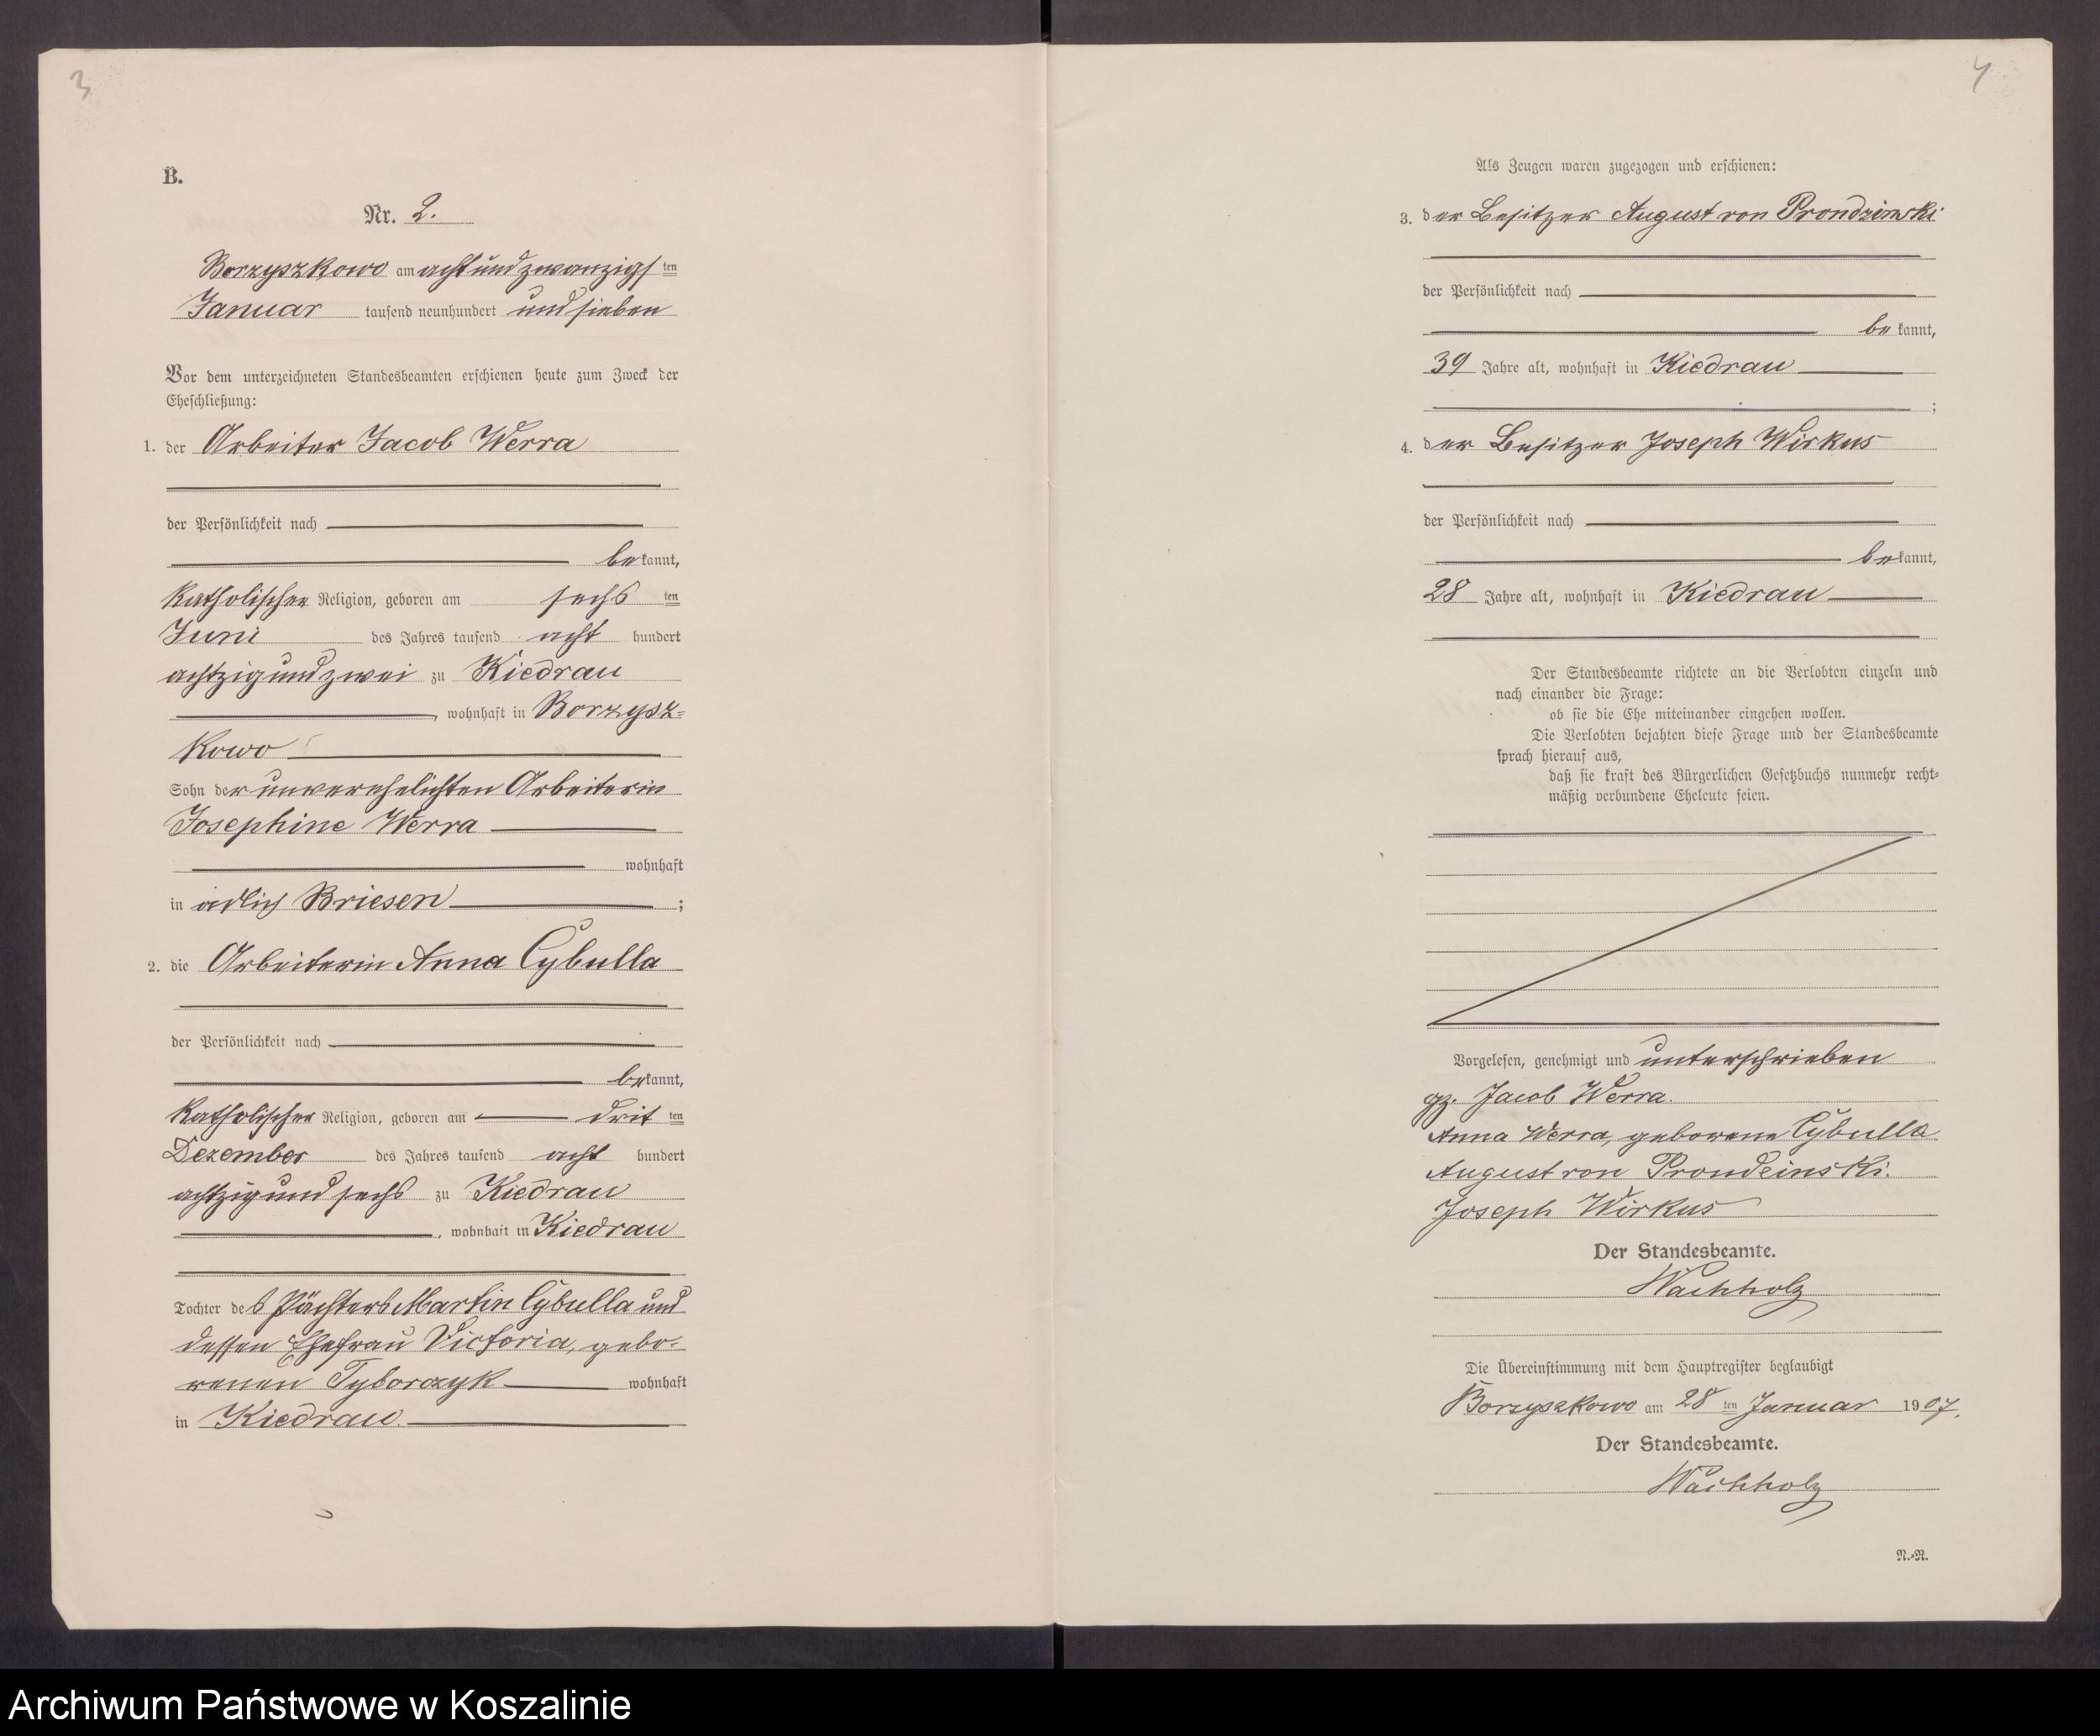 3
B.
Nr. 2.
Borzyszkowo am achtundzwanzigsten
Januar tausend neunhundert und sieben
Vor dem unterzeichneten Standesbeamten erschienen heute zum Zweck der
Eheschließung:
1. der Arbeiter Jacob Werra
der Persönlichkeit nach
bekannt,
katholischer Religion, geboren am sechsten
Juni des Jahres tausend acht hundert
achtzig und zwei zu Kiedrau
, wohnhaft in Borzysz=
kowo
Sohn der unverehelichten Arbeiterin
Josephine Werra
wohnhaft
in adlich Briesen ;
2. die Arbeiterin Anna Cybulla
der Persönlichkeit nach
bekannt,
katholischer Religion, geboren am dritten
Dezember des Jahres tausend acht hundert
achtzig und sechs zu Kiedrau
, wohnhaft in Kiedrau
Tochter des Pächters Martin Cybulla und
dessen Ehefrau Victoria, gebo=
renen Tyborczyk wohnhaft
in Kiedrau.
4
Als Zeugen waren zugezogen und erschienen:
3. der Besitzer August von Prondzinski
der Persönlichkeit nach
bekannt,
39 Jahre alt, wohnhaft in Kiedrau
;
4. der Besitzer Joseph Wirkus
der Persönlichkeit nach
bekannt,
28 Jahre alt, wohnhaft in Kiedrau
Der Standesbeamte richtete an die Verlobten einzeln und
nach einander die Frage:
ob sie die Ehe miteinander eingehen wollen.
Die Verlobten bejahten diese Frage und der Standesbeamte
sprach hierauf aus,
daß sie kraft des Bürgerlichen Gesetzbuchs nunmehr recht=
mäßig verbundene Eheleute seien.
Vorgelesen, genehmigt und unterschrieben
gz. Jacob Werra.
Anna Werra, geborene Cybulla
August von Prondzinski.
Joseph Wirkus
Der Standesbeamte.
Wachholz
Die Übereinstimmung mit dem Hauptregister beglaubigt
Borzyszkowo am 28 ten Januar 1907.
Der Standesbeamte.
Wachholz
N.=N.
Archiwum Państwowe w Koszalinie